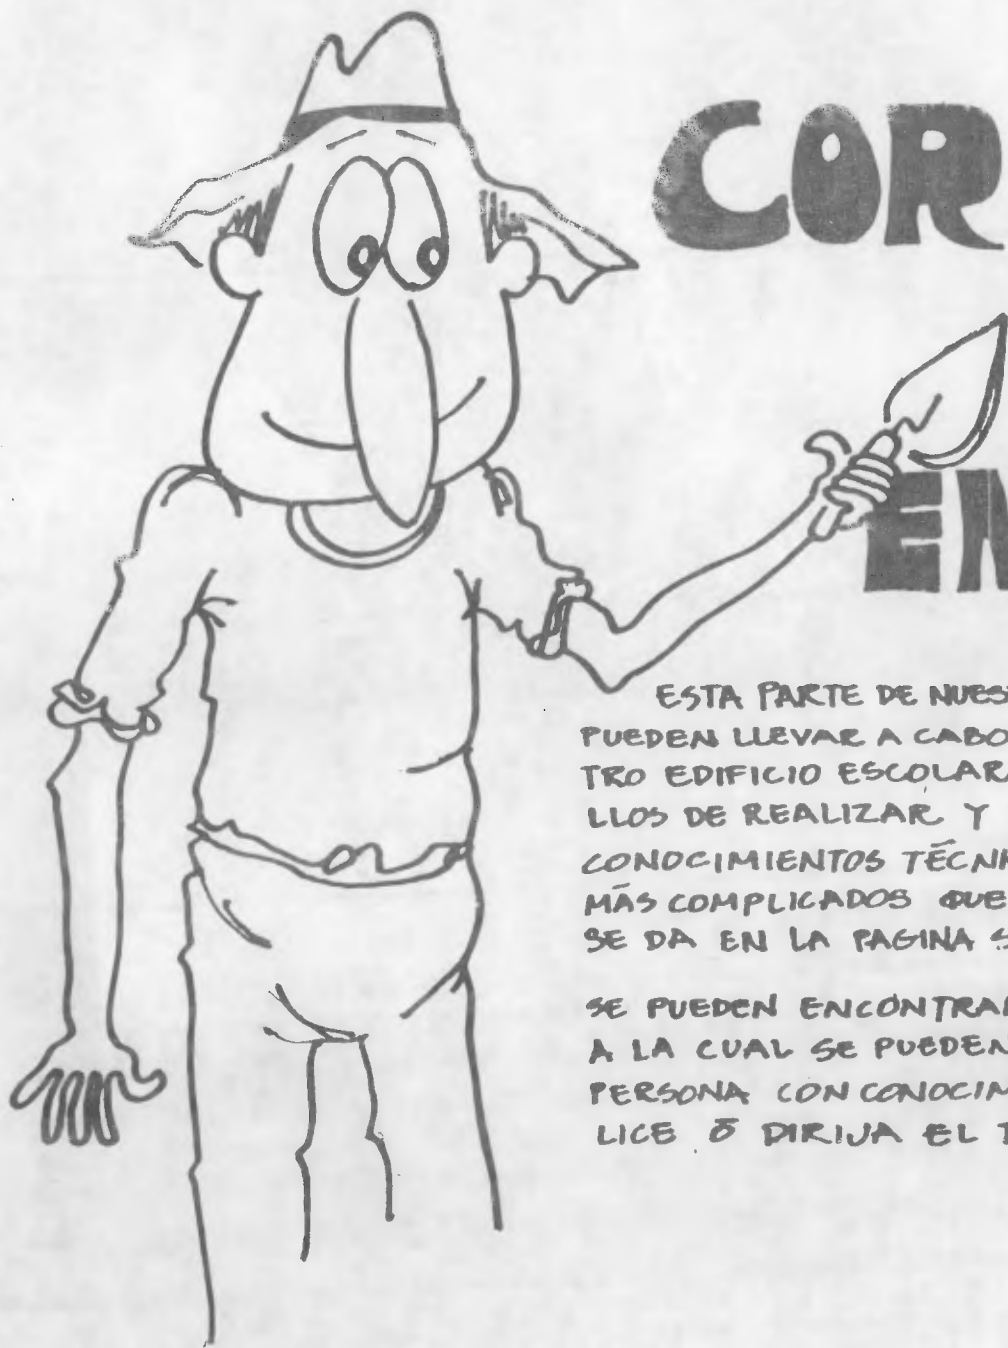 COR
EN
ESTA PARTE DE NUES
PUEDEN LLEVAR A CABO
TRO EDIFICIO ESCOLAR
LLOS DE REALIZAR Y
CONOCIMIENTOS TÉCNI
MÁS COMPLICADOS QUE
SE DA EN LA PAGINA S
SE PUEDEN ENCONTRAR
A LA CUAL SE PUEDEN
PERSONA CON CONOCIM
LICE Ó DIRIJA EL T